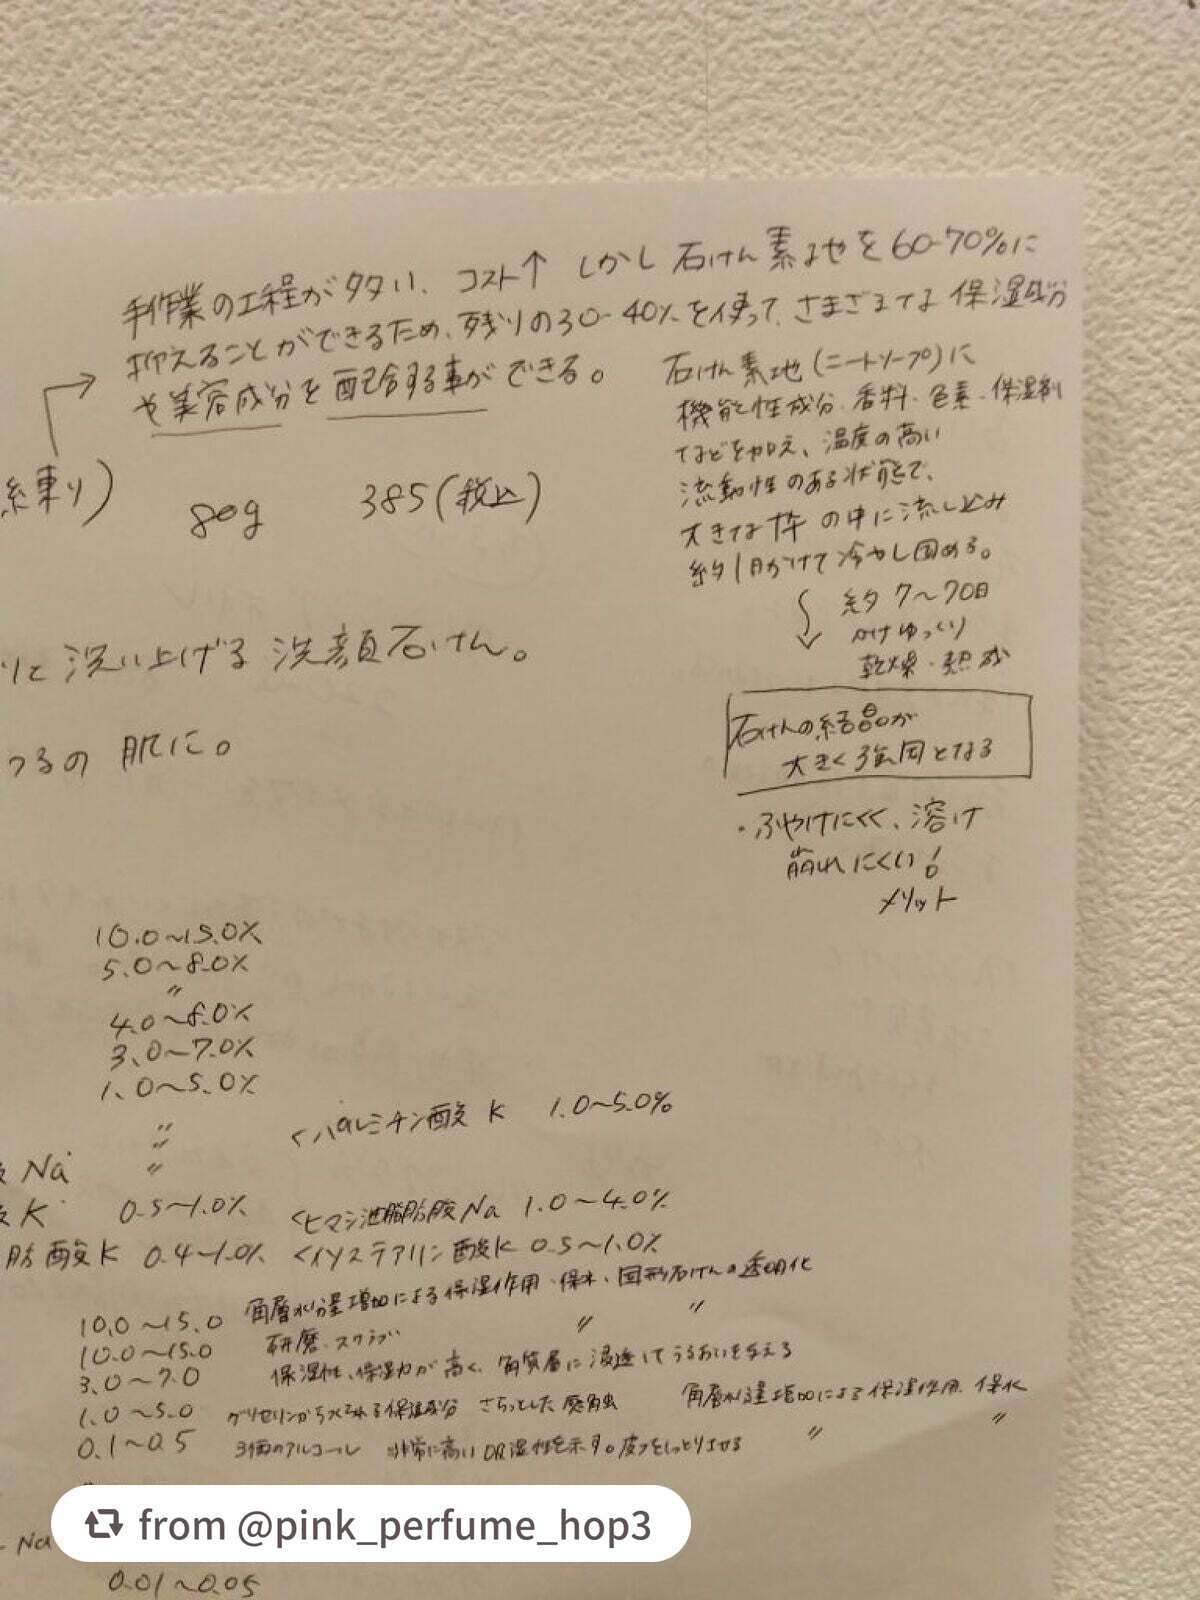 手作業の工程が多い、コスト↑ しかし 石けん素地を60-70%に
抑えることができるため、残りの30-40%を使って、さまざまな 保湿成分
や美容成分を配合する事ができる。
練り)
80g 385(税込)
石けん素地(ニートソープ)に
機能性成分、香料、色素、保湿剤
などを加え、温度の高い
流動性のある状態で、
大きな枠の中に流し込み
約1日かけて冷やし固める。
約7〜70日
かけゆっくり
乾燥・熟成
石けんの結晶が
大きく強固となる
・ふやけにくく、溶け
崩れにくい!
メリット
に洗い上げる洗顔石けん。
つるの 肌に。
10.0〜15.0%
5.0〜8.0%
〃
4.0〜8.0%
3.0〜7.0%
1.0〜5.0%
〃 <パルミチン酸K 1.0〜5.0%
〃
Na 〃
K 0.5〜1.0% <ヒマシ油脂肪酸Na 1.0〜4.0%
肪酸K 0.4〜1.0% <イソステアリン酸K 0.5〜1.0%
10.0〜15.0 角層水分量増加による保湿作用・保水、固形石けんの透明化
10.0〜15.0 研磨、スクラブ 〃 〃
3.0〜7.0 保湿性、保湿力が高く、角質層に浸透してうるおいを与える
1.0〜5.0 グリセリンから作られる保湿成分 さらっとした感触 角層水分量増加による保湿作用、保水
0.1〜0.5 3価のアルコール 非常に高い吸湿性を示す。皮フをしっとりさせる 〃 〃
Na
0.01〜0.05
from @pink_perfume_hop3